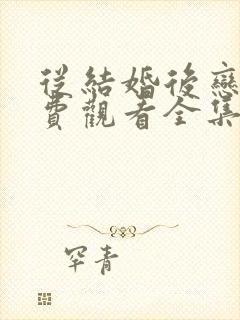 從結婚後戀
費觀看全集
罕青